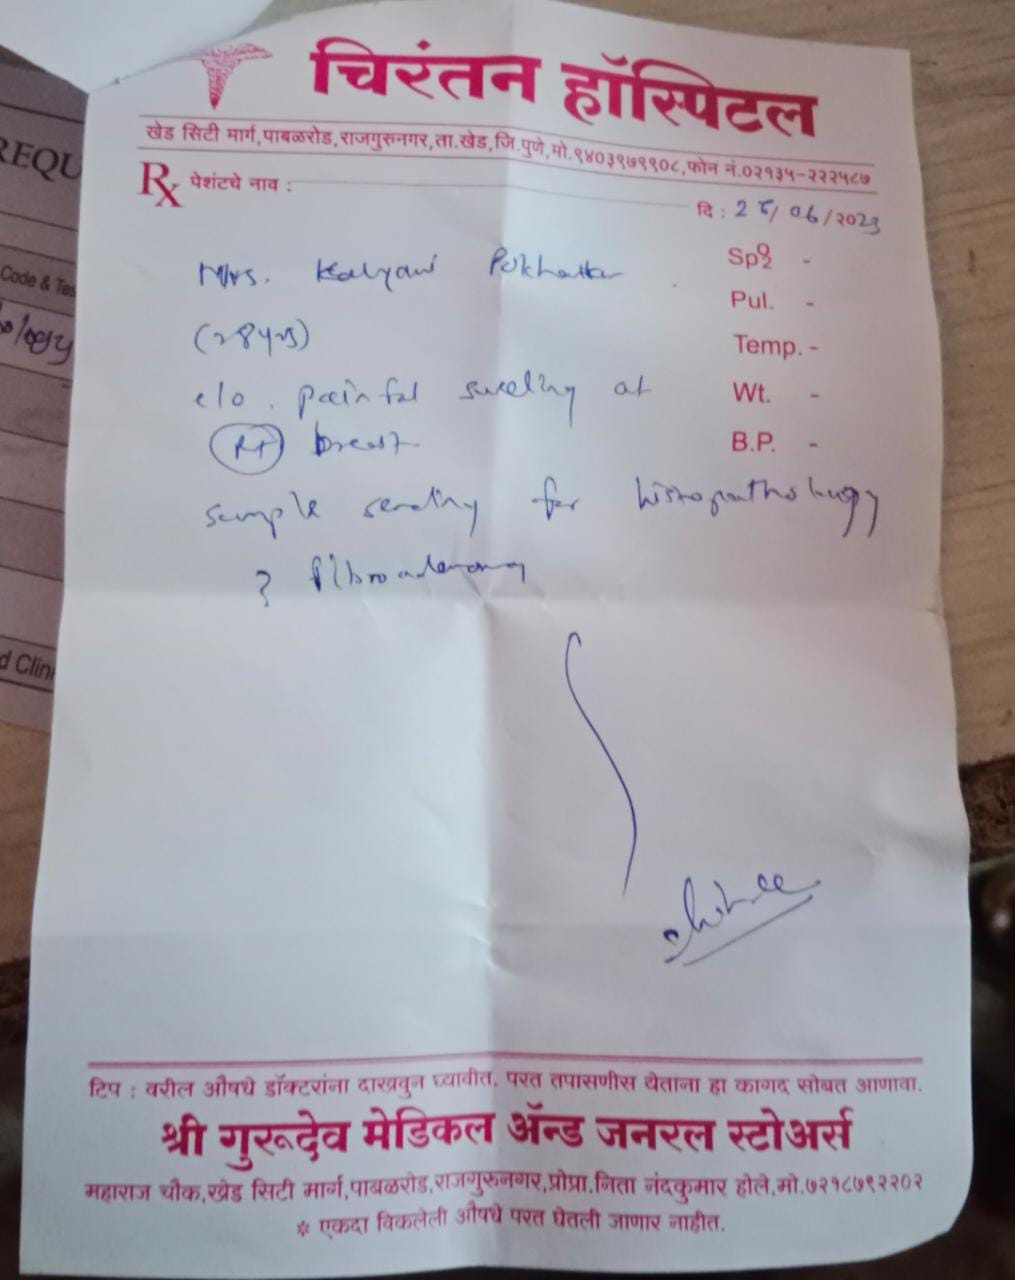 चिरंतन हॉस्पिटल
खेड सिटी मार्ग,पाबळरोड,राजगुरुनगर,ता.खेड,जि.पुणे,मो.९४०३९७९९०८,फोन नं.०२१३५-२२२५८७
Rx पेशंटचे नाव :
दि : 28/06/2023
Mrs. Kalyani
Sp02 -
Pul. -
(28yrs)
Temp. -
c/o. painful swelling at
Wt. -
Rt breast
B.P. -
sample sending for histopathology
? fibroadenoma
टिप : वरील औषधे डॉक्टरांना दाखवुन घ्यावीत. परत तपासणीस येताना हा कागद सोबत आणावा.
श्री गुरूदेव मेडिकल ॲन्ड जनरल स्टोअर्स
महाराज चौक,खेड सिटी मार्ग,पाबळरोड,राजगुरुनगर,प्रोप्रा.निता नंदकुमार होले,मो.७२१८७९२२०२
* एकदा विकलेली औषधे परत घेतली जाणार नाहीत.
REQU
Code & Tes
d Clini